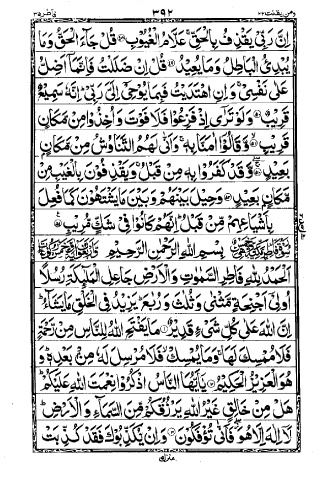 ومن یقنت ٢٢ ٣٩٢ فاطر ٣٥
اِنَّ رَبِّیْ یَقْذِفُ بِالْحَقِّ عَلَّامُ الْغُیُوْبِ قُلْ جَآءَ الْحَقُّ وَمَا
یُبْدِئُ الْبَاطِلُ وَمَا یُعِیْدُ قُلْ اِنْ ضَلَلْتُ فَاِنَّمَاۤ اَضِلُّ
عَلٰی نَفْسِیْ وَاِنِ اهْتَدَیْتُ فَبِمَا یُوْحِیْۤ اِلَیَّ رَبِّیْ اِنَّهٗ سَمِیْعٌ
قَرِیْبٌ وَلَوْ تَرٰۤی اِذْ فَزِعُوْا فَلَا فَوْتَ وَاُخِذُوْا مِنْ مَّكَانٍ
قَرِیْبٍ وَّقَالُوْۤا اٰمَنَّا بِهٖ وَاَنّٰی لَهُمُ التَّنَاوُشُ مِنْ مَّكَانٍۭ
بَعِیْدٍ وَّقَدْ كَفَرُوْا بِهٖ مِنْ قَبْلُ وَیَقْذِفُوْنَ بِالْغَیْبِ مِنْ
مَّكَانٍۭ بَعِیْدٍ وَحِیْلَ بَیْنَهُمْ وَبَیْنَ مَا یَشْتَهُوْنَ كَمَا فُعِلَ
بِاَشْیَاعِهِمْ مِّنْ قَبْلُ اِنَّهُمْ كَانُوْا فِیْ شَكٍّ مُّرِیْبٍ
بِسْمِ اللهِ الرَّحْمٰنِ الرَّحِیْمِ
اَلْحَمْدُ لِلهِ فَاطِرِ السَّمٰوٰتِ وَالْاَرْضِ جَاعِلِ الْمَلٰٓئِكَةِ رُسُلًا
اُولِیْۤ اَجْنِحَةٍ مَّثْنٰی وَثُلٰثَ وَرُبٰعَ یَزِیْدُ فِی الْخَلْقِ مَا یَشَآءُ
اِنَّ اللهَ عَلٰی كُلِّ شَیْءٍ قَدِیْرٌ مَا یَفْتَحِ اللهُ لِلنَّاسِ مِنْ رَّحْمَةٍ
فَلَا مُمْسِكَ لَهَا وَمَا یُمْسِكْ فَلَا مُرْسِلَ لَهٗ مِنْۢ بَعْدِهٖ وَ
هُوَ الْعَزِیْزُ الْحَكِیْمُ یٰۤاَیُّهَا النَّاسُ اذْكُرُوْا نِعْمَتَ اللهِ عَلَیْكُمْ
هَلْ مِنْ خَالِقٍ غَیْرُ اللهِ یَرْزُقُكُمْ مِّنَ السَّمَآءِ وَالْاَرْضِ
لَاۤ اِلٰهَ اِلَّا هُوَ فَاَنّٰی تُؤْفَكُوْنَ وَاِنْ یُّكَذِّبُوْكَ فَقَدْ كُذِّبَتْ